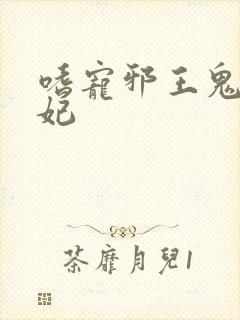 嗜寵邪王鬼
妃
荼靡月兒1